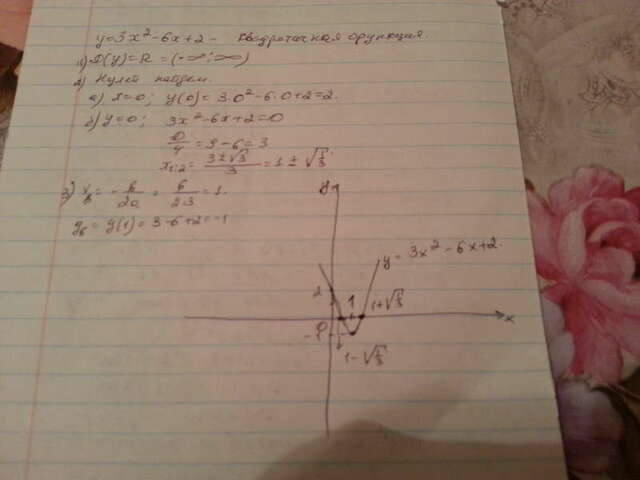 y=3x²-6x+2 - Квадратичная функция.
1) D(y)=R = (-∞; ∞)
2) Нулей найдем.
а) x=0; y(0) = 3·0²-6·0+2=2.
б) y=0; 3x²-6x+2=0
D/4 = 9-6=3
x₁,₂ = (3±√3)/3 = 1 ± √(1/3)
3) x_в = -b/2a = 6/2·3 = 1.
y_в = y(1) = 3-6+2=-1
y
y = 3x²-6x+2.
2
1
1+√(1/3)
x
-1
1-√(1/3)